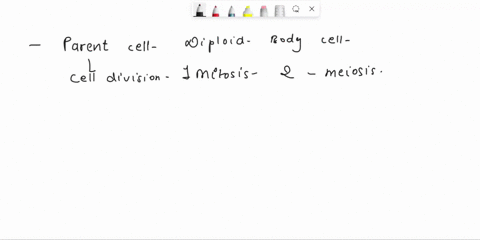 - Parent cell- Diploid- Body cell-
cell division- 1 mitosis- 2 - meiosis.